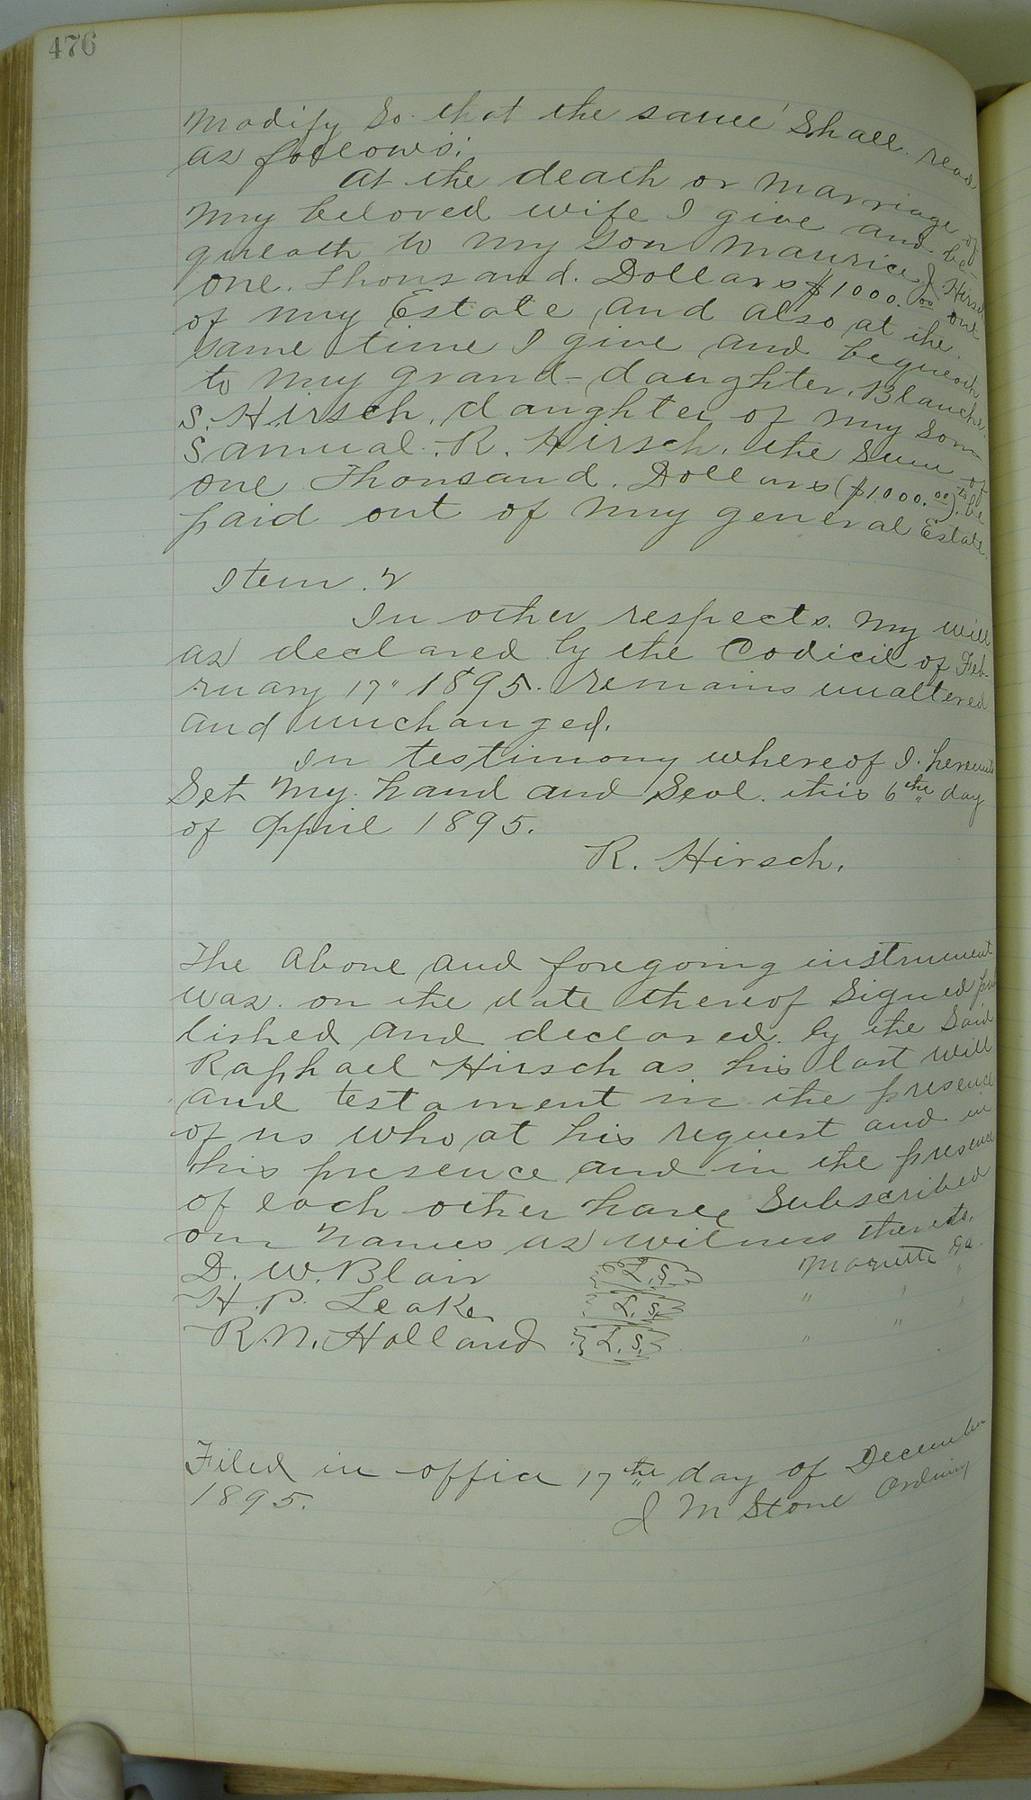 476
Modify So that the same Shall read
as follows:
At the death or marriage of
My beloved wife I give and be-
queath to My Son Maurice J Hirsch
one Thousand Dollars $1000.00 out
of my Estate and also at the
same time I give and bequeath
to my grand-daughter, Blanche
S. Hirsch, daughter of my Son
Samual R. Hirsch, the Sum of
one Thousand Dollars ($1000.00) to be
paid out of my general Estate.
Item 2
In other respects My will
as declared by the Codicil of Feb-
ruary 17" 1895. remains unaltered
and unchanged.
In testimony whereof I hereunto
Set My hand and Seal this 6th day
of April 1895.
R. Hirsch.
The above and foregoing instrument
was on the date thereof Signed pub
lished and declared by the Said
Raphael Hirsch as his last will
and testament in the presence
of us who at his request and in
his presence and in the presence
of each other have Subscribed
our Names as witness thereto.
D. W. Blair L.S. Marietta Ga.
H. P. Leake L.S. " " "
R. N. Holland L.S. " "
Filed in office 17th day of December
1895.
J M Stone Ordinary